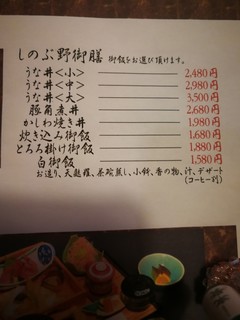 しのぶ野御膳 御飯をお選び頂けます。
うな丼<小> 2,480円
うな丼<中> 2,980円
うな丼<大> 3,500円
豚角煮丼 2,680円
かしわ焼き丼 1,980円
炊き込み御飯 1,680円
とろろ掛け御飯 1,880円
白御飯 1,580円
お造り、天麩羅、茶碗蒸し、小鉢、香の物、汁、デザート
(コーヒー別)